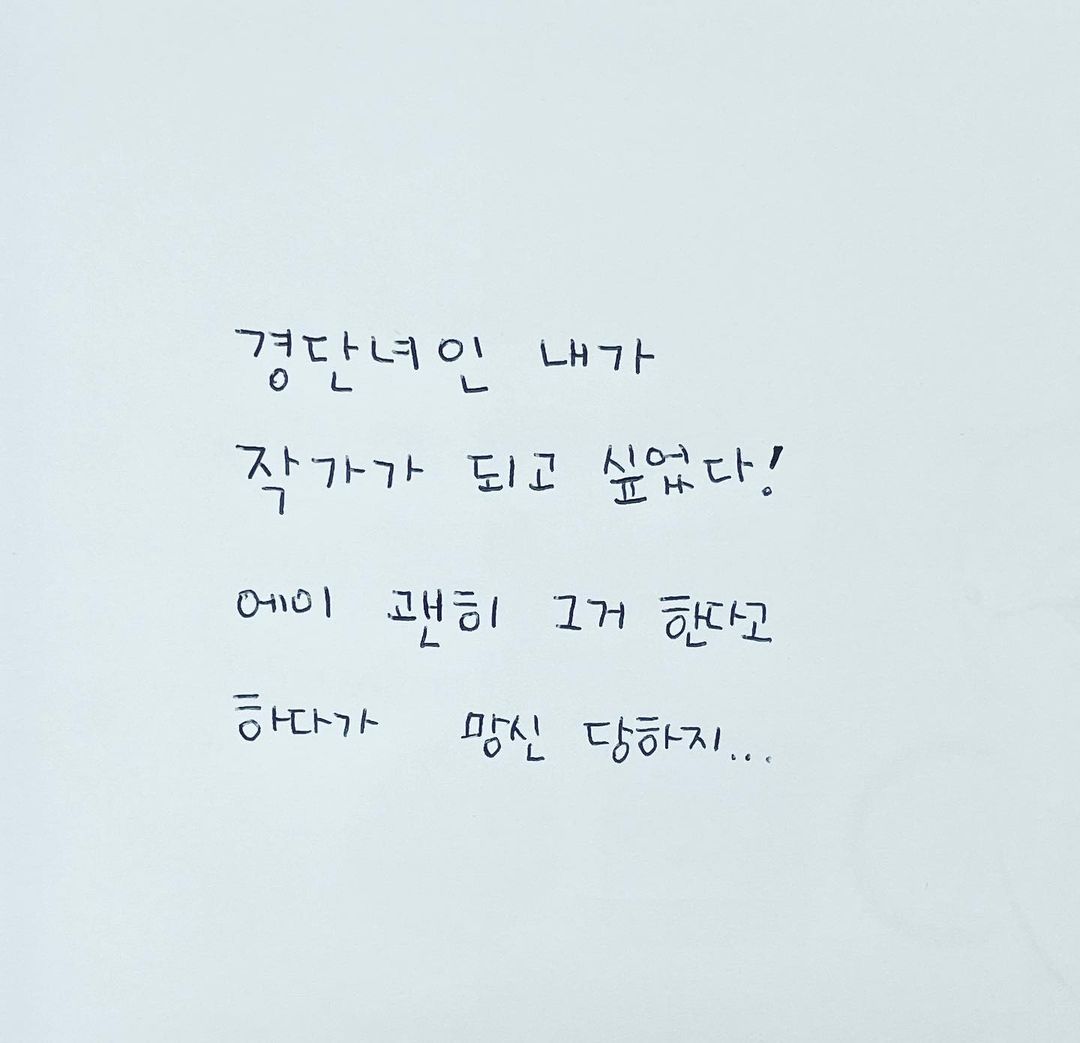 경단녀인 내가
작가가 되고 싶었다!
에이 괜히 그거 한다고
하다가 망신 당하지...